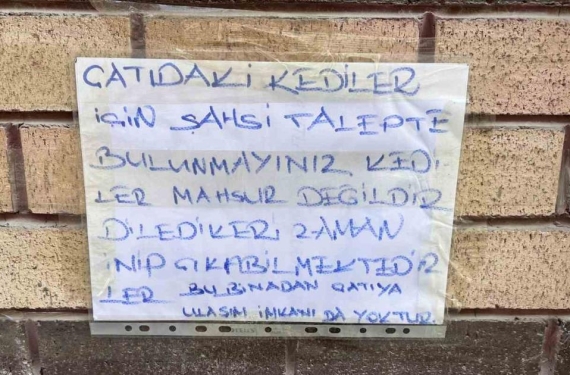 ÇATIDAKİ KEDİLER
İÇİN ŞAHSİ TALEPTE
BULUNMAYINIZ KEDİ
LER MAHSUR DEĞİLDİR
DİLEDİKERİ ZAMAN
İNİP ÇIKABİLMEKTEDİR
LER BU BİNADAN ÇATIYA
ULAŞIM İMKANI DA YOKTUR.